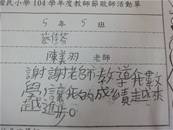 國民小學104學年度教師節敬師活動單
5年5班
老師
謝謝老師教導我數
學,讓我的成績越來
越進步。